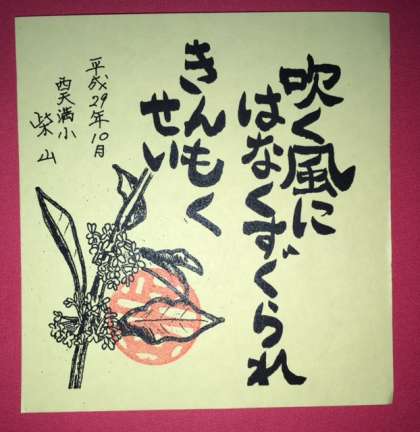 吹く風に
はなくすぐられ
きんもく
せい
平成29年10月
西天満小
柴山